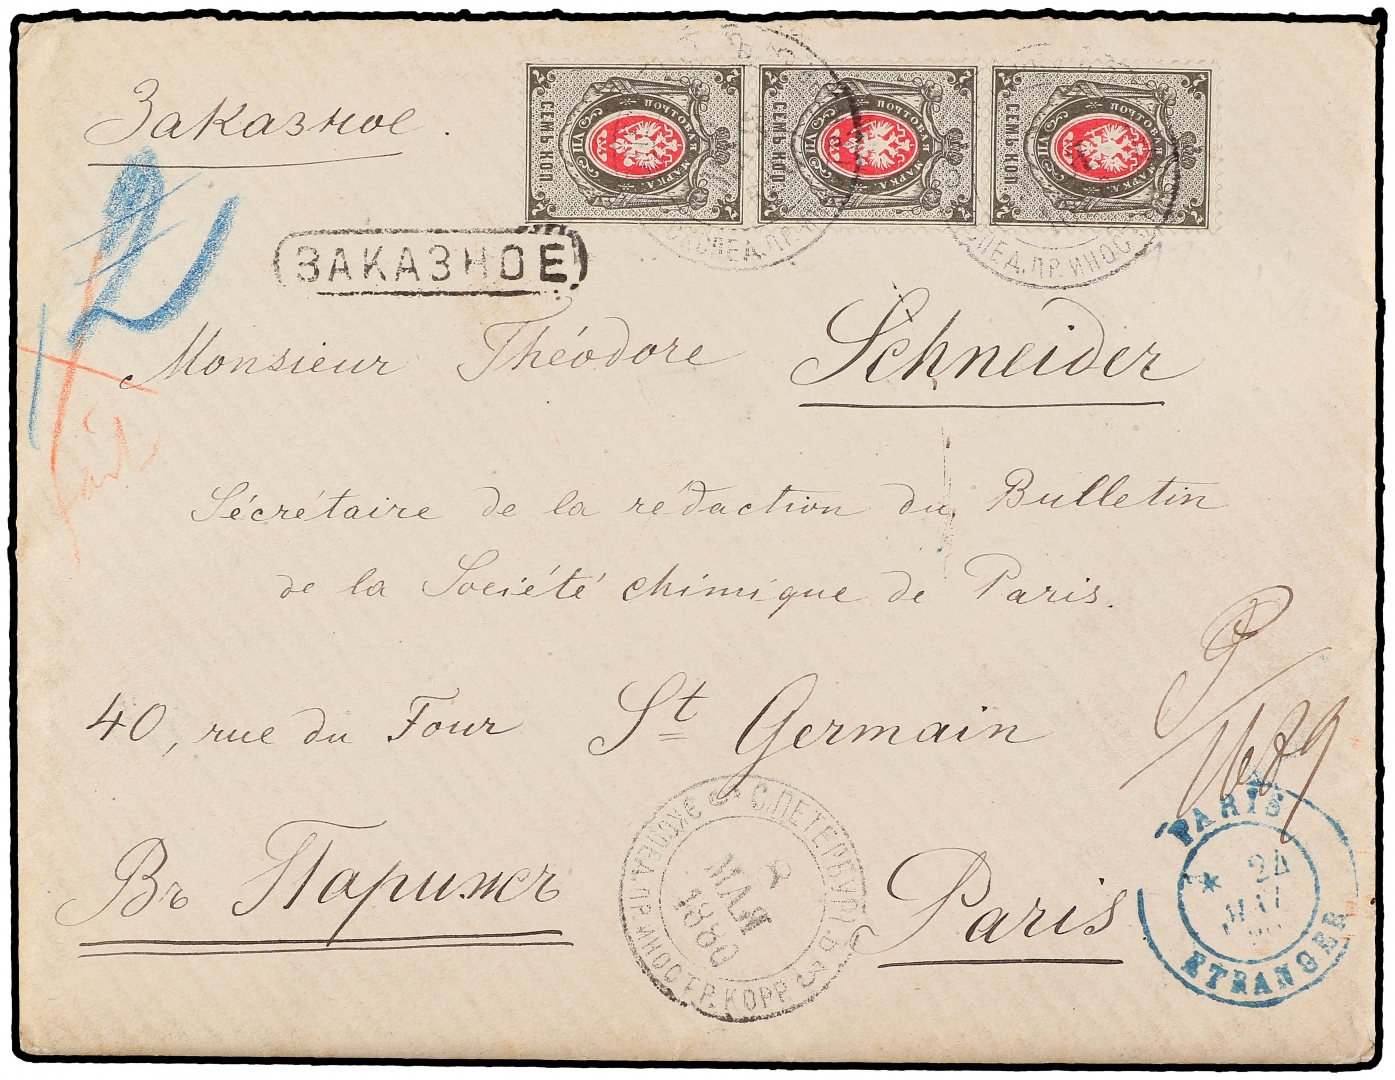 Заказное.
7 СЕМЬ КОП. 7 ПОЧТОВАЯ МАРКА VII КОП.
7 СЕМЬ КОП. 7 ПОЧТОВАЯ МАРКА VII КОП.
7 СЕМЬ КОП. 7 ПОЧТОВАЯ МАРКА VII КОП.
ЗАКАЗНОЕ
Monsieur Théodore Schneider
Sécrétaire de la rédaction du Bulletin
de la Société chimique de Paris.
40, rue du Four St Germain
1689
Въ Парижъ
Paris
С.ПЕТЕРБУРГЪ
8
МАЯ
1880
ЭКСПЕД. ПР. ИНОСТР. КОРР.
PARIS
24
MAI
ETRANGER